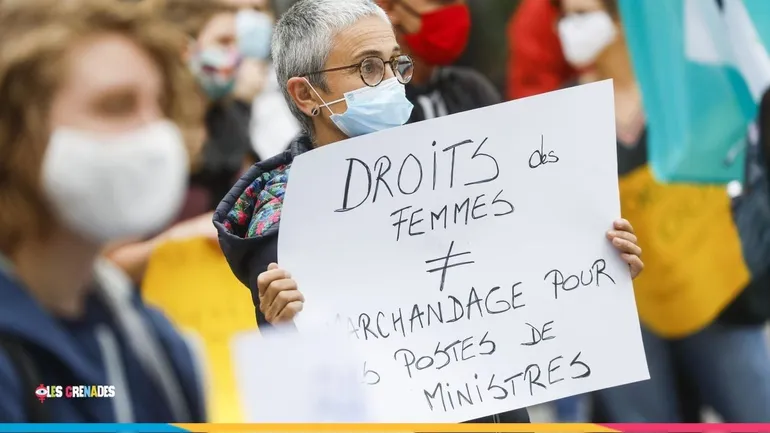 DROITS des
FEMMES
≠
MARCHANDAGE POUR
POSTES DE
MINISTRES
LES GRENADES